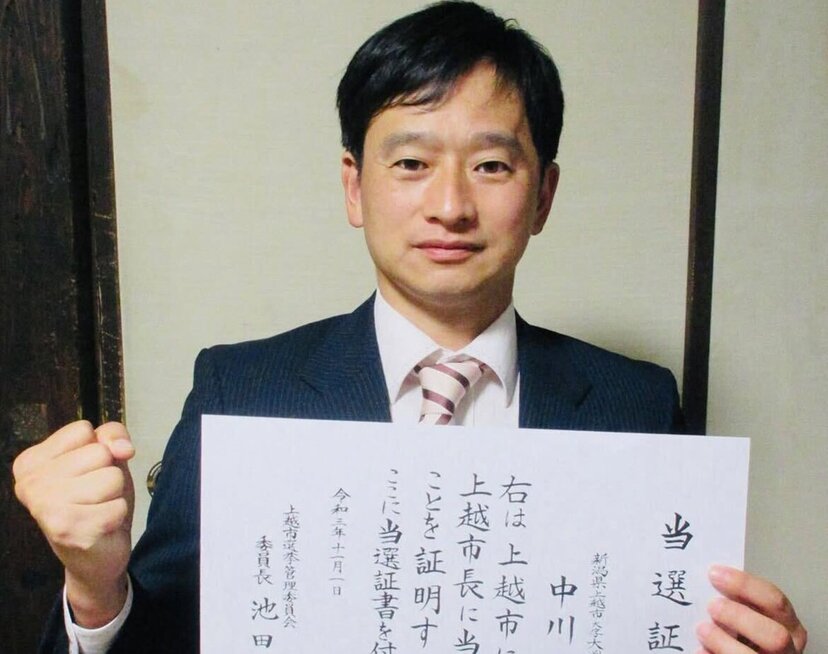 当選証
新潟県上越市大字大
中川
右は上越市に
上越市長に当
ことを証明す
ここに当選証書を付
令和三年十一月一日
上越市選挙管理委員会
委員長 池田